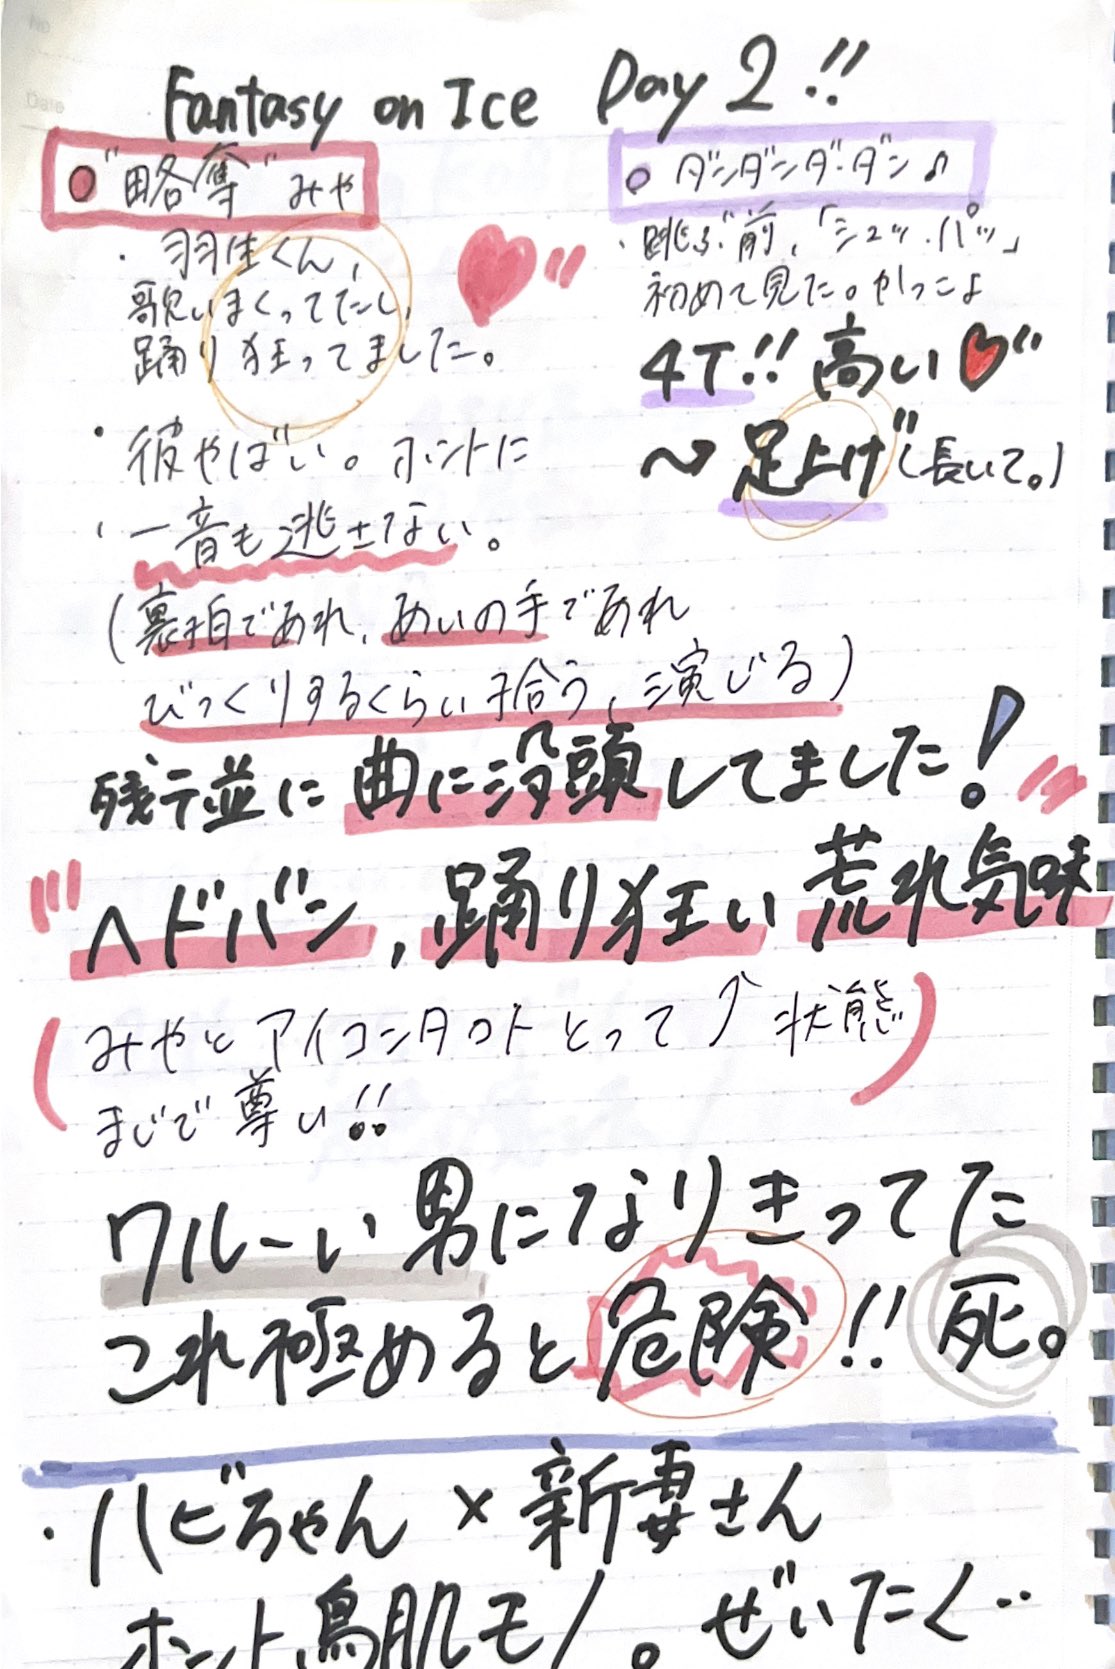 No
Date
Fantasy on Ice Day 2!!
● "略奪" みや
・羽生くん,
歌いまくってたし,
踊り狂ってました。
・彼やばい。ホントに
・一音も逃さない。
(裏拍であれ、あいの手であれ
びっくりするくらい拾う、演じる)
○ ダンダンダ・ダン♪
・跳ぶ前,「シュッ・パッ」
初めて見た。かっこよ
4T!! 高い♥"
〜足上げ"(長いて。)
残テ並に曲に没頭してました!
"ヘドバン, 踊り狂い 荒れ気味
(みやとアイコンタクトとって↑状態)
まじで尊い!!
ワルーい男になりきってた
これ極めると危険!! 死。
・ハビちゃん × 新妻さん
ホント鳥肌モノ。ぜいたく‥